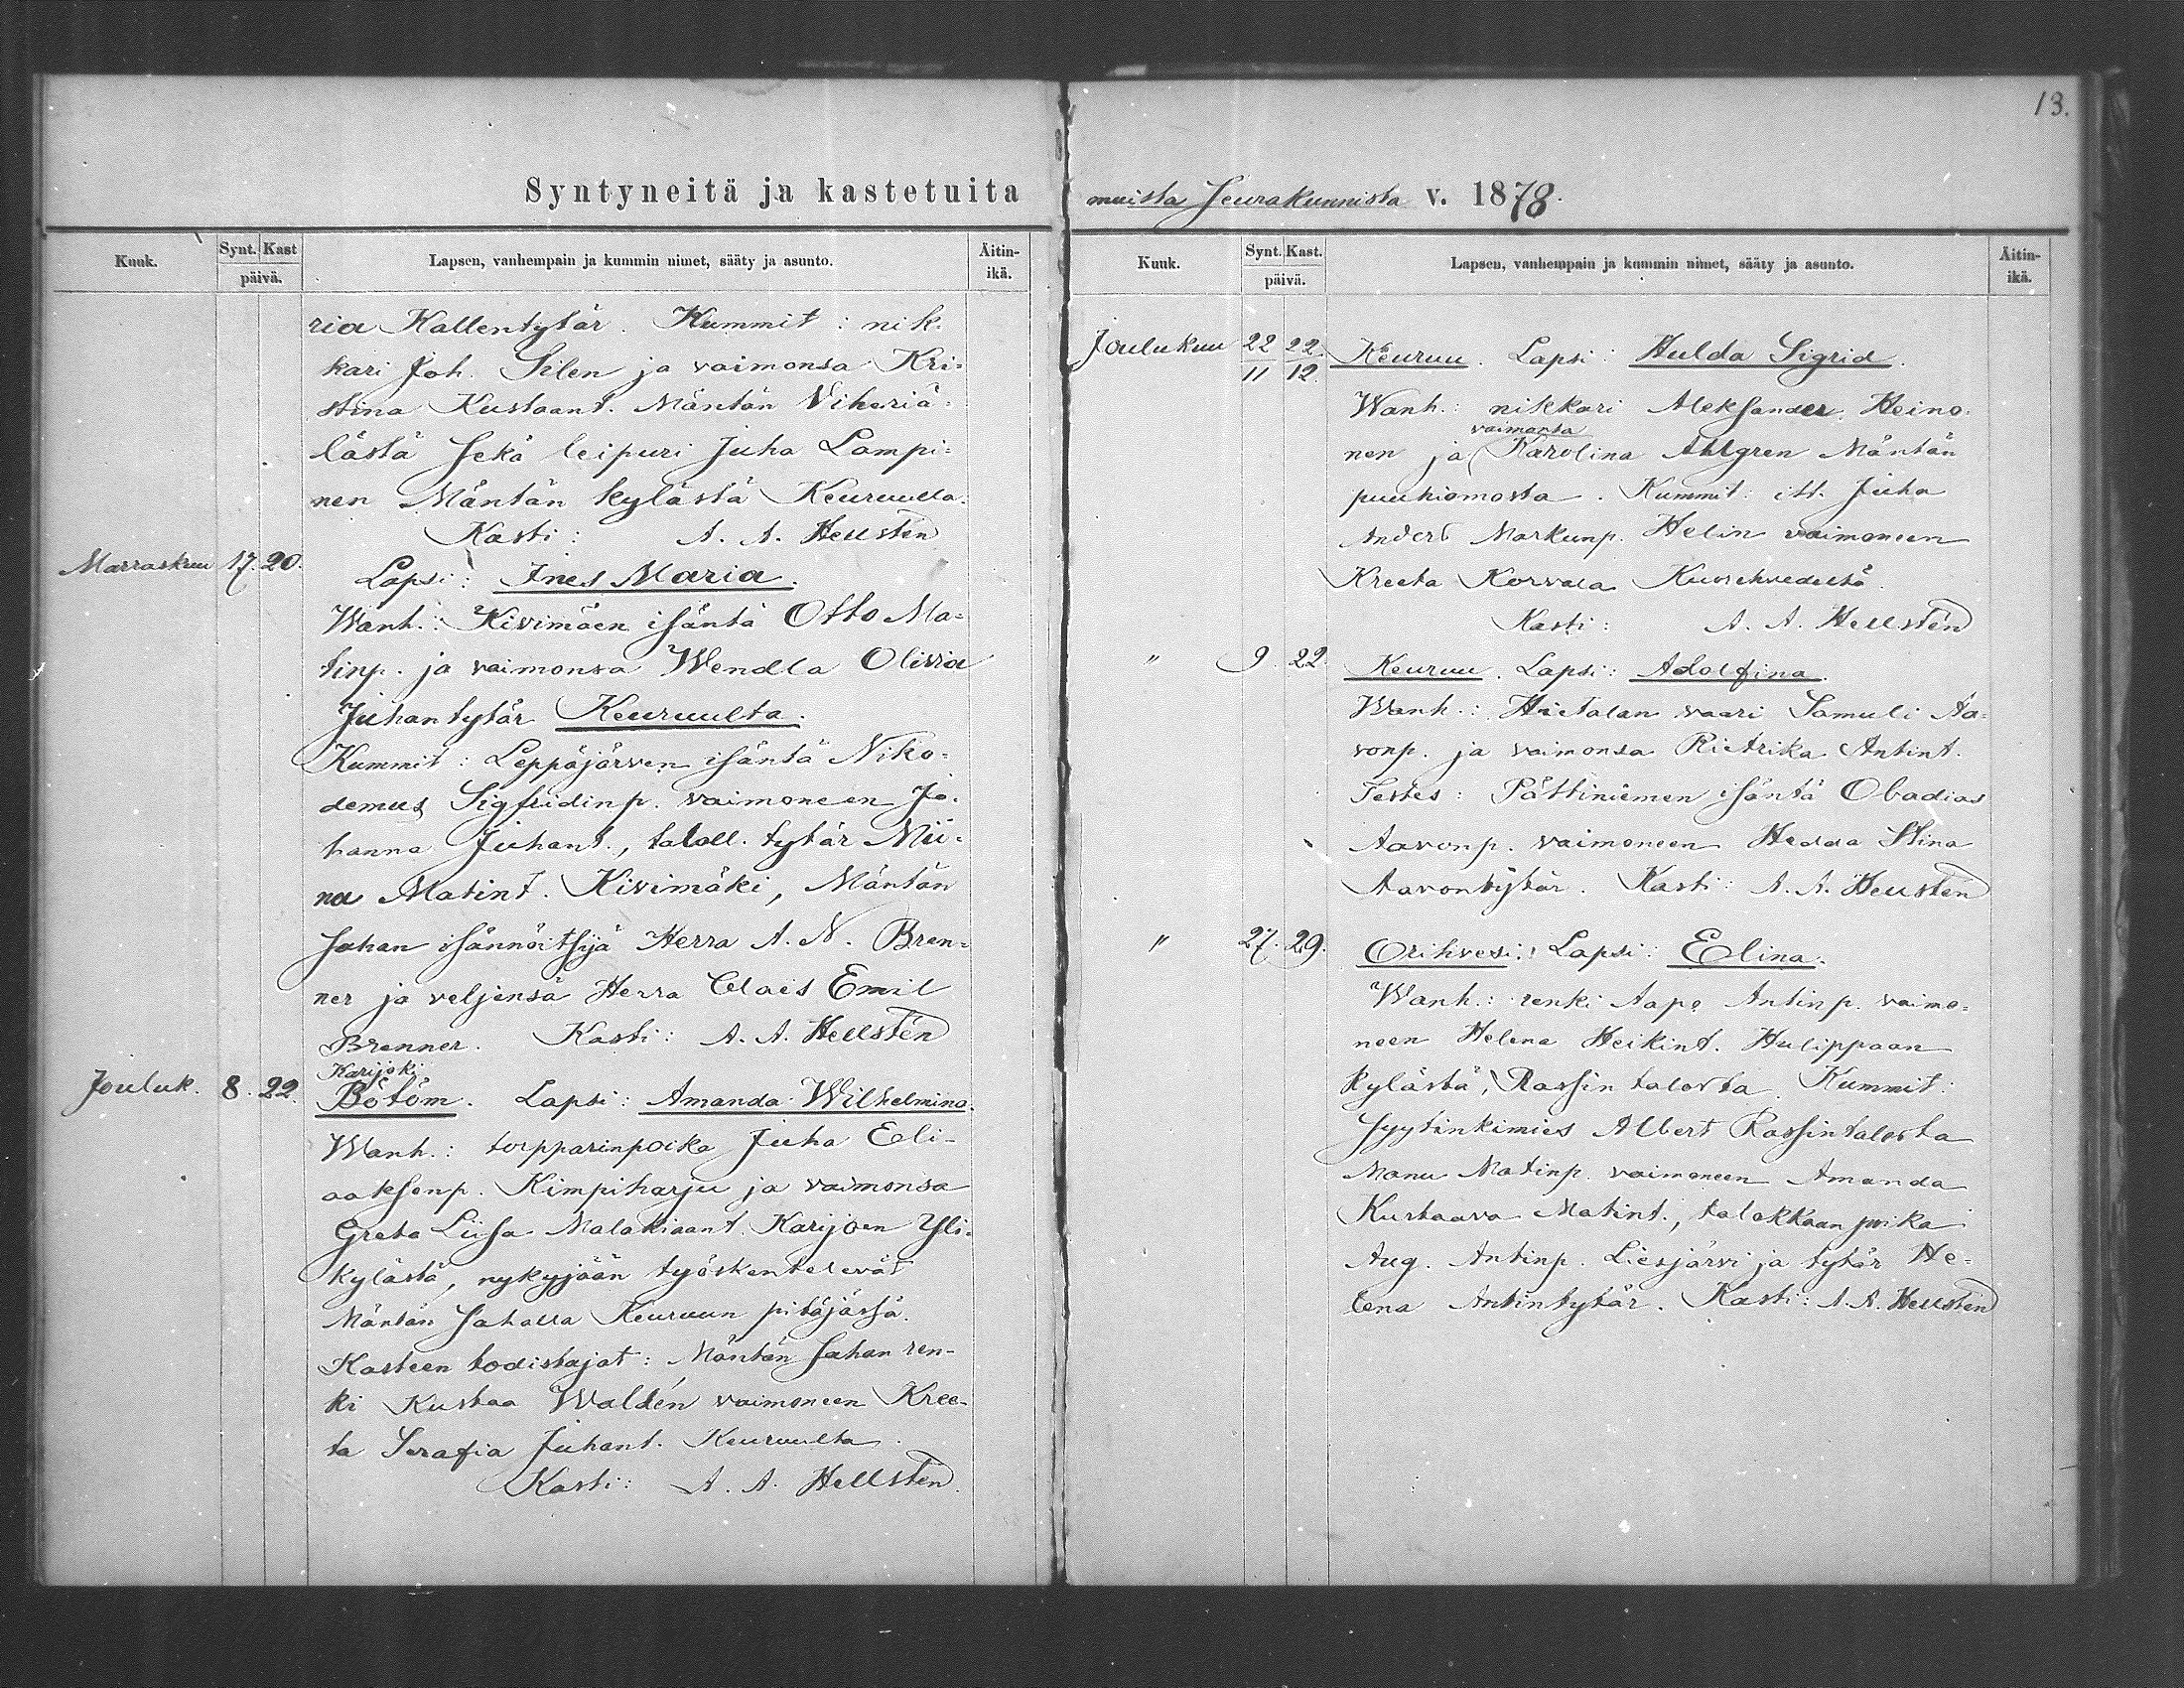 13.
Syntyneitä ja kastetuita muista Seurakunnista v. 1878.
Kuuk. Synt. Kast päivä. Lapsen, vanhempain ja kummin nimet, sääty ja asunto. Äitin-ikä.
ria Kallentytär. Kummit: nik-
kari Joh. Silen ja vaimonsa Kri-
stina Kustaant. Mäntän Viheriä-
lästä sekä leipuri Juha Lampi-
nen Mäntän kylästä Keuruulla.
Kasti: A. A. Hellstén
Marraskuu 17. 20. Lapsi: Ines Maria.
Wanh.: Kivimäen isäntä Otto Ma-
tinp. ja vaimonsa Wendla Olivia
Juhantytär Keuruulta.
Kummit: Leppäjärven isäntä Niko-
demus Sigfridinp. vaimoneen Jo-
hanna Juhant., taloll. tytär Mii-
na Matint. Kivimäki, Mäntän
Sahan isännöitsijä Herra A. N. Bren-
ner ja veljensä Herra Claës Emil
Brenner. Kasti: A. A. Hellstén
Karijoki
Jouluk. 8. 22. Bötöm. Lapsi: Amanda Wilhelmina.
Wanh.: torpparinpoika Juha Eli-
aaksonp. Kimpiharju ja vaimonsa
Greta Liisa Malakiaant. Karijoen Yli-
kylästä, nykyjään työskentelevät
Mäntän Sahalla Keuruun pitäjässä.
Kasteen todistajat: Mäntän Sahan ren-
ki Kustaa Waldén vaimoneen Kree-
ta Serafia Juhant. Keuruulta.
Kasti: A. A. Hellstén.
Kuuk. Synt. Kast. päivä. Lapsen, vanhempain ja kummin nimet, sääty ja asunto. Äitin-ikä.
Joulukuu 22/11 22./12. Keuruu. Lapsi: Hulda Sigrid.
Wanh.: nikkari Aleksander Heino-
vaimonsa
nen ja Karolina Ahlgren Mäntän
puuhiomosta. Kummit: itt. Juha
Anders Markunp. Helin vaimoneen
Kreeta Korvala Kuorehvedeltä.
Kasti: A. A. Hellstén
" 9. 22. Keuruu. Lapsi: Adolfina.
Wanh.: Hietalan vaari Samuli Aa-
ronp. ja vaimonsa Rietrika Antint.
Testes: Pättiniemen isäntä Obadias
Aaronp. vaimoneen Hedda Stina
Aarontytär. Kasti: A. A. Hellstén
" 27. 29. Orihvesi: Lapsi: Elina.
Wanh.: renki Aapo Antinp. vaimo-
neen Helena Heikint. Hulippaan
kylästä, Rassin talosta. Kummit:
Syytinkimies Albert Rassintalosta
Manu Matinp. vaimoneen Amanda
Kustaava Matint., talokkaan poika
Aug. Antinp. Liesjärvi ja tytär He-
lena Antintytär. Kasti: A. A. Hellstén